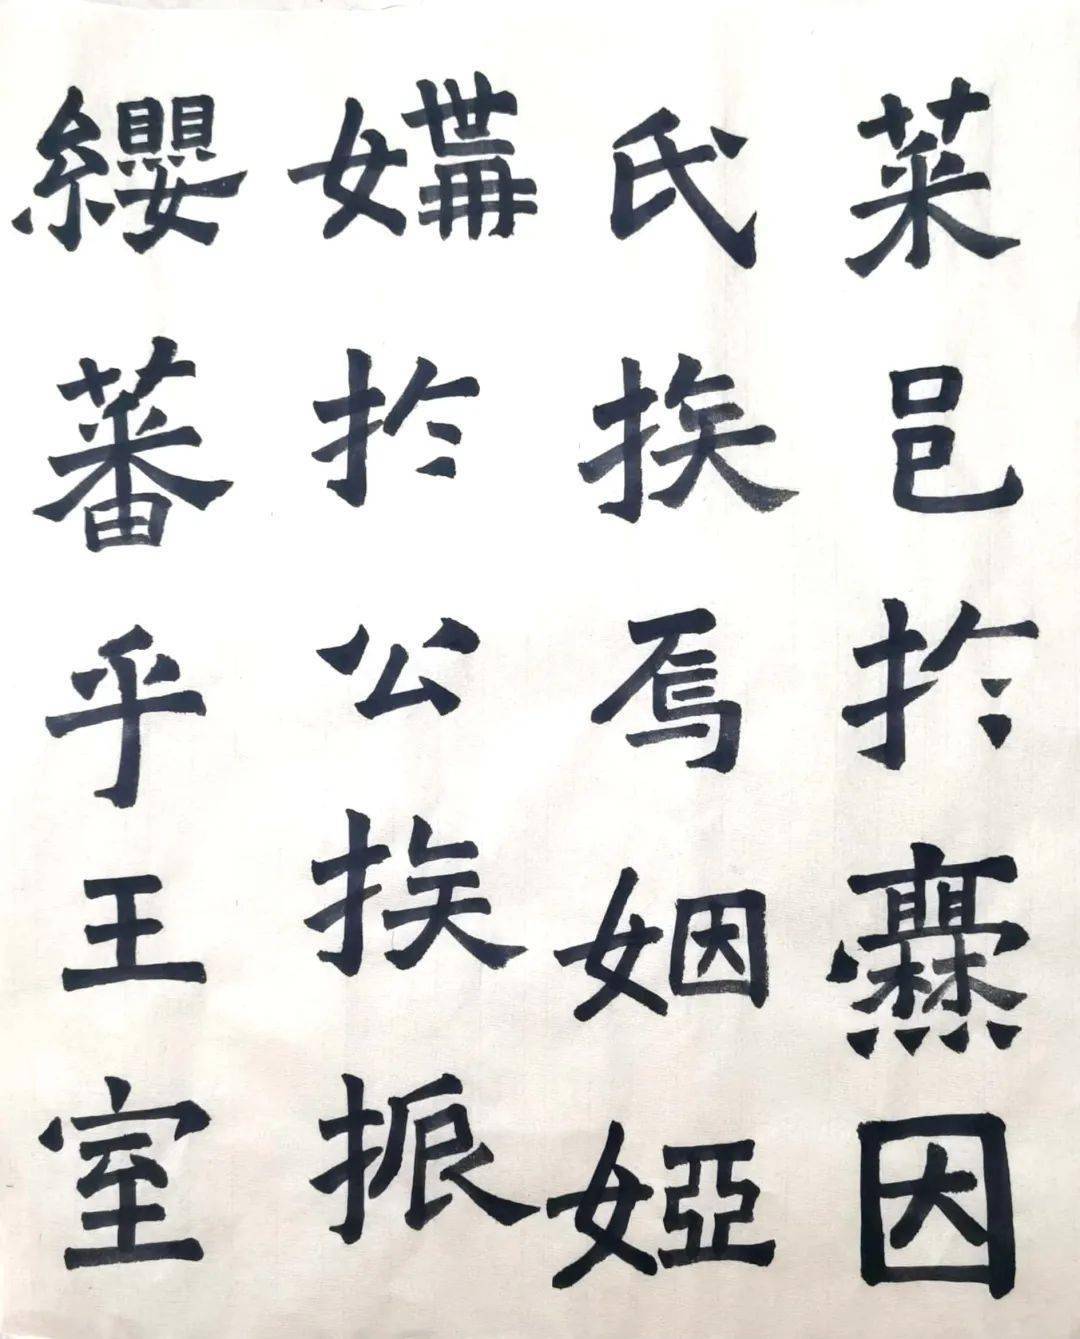 菜邑扵爨因
氏族焉姻婭
媾扵公族振
纓蕃乎王室